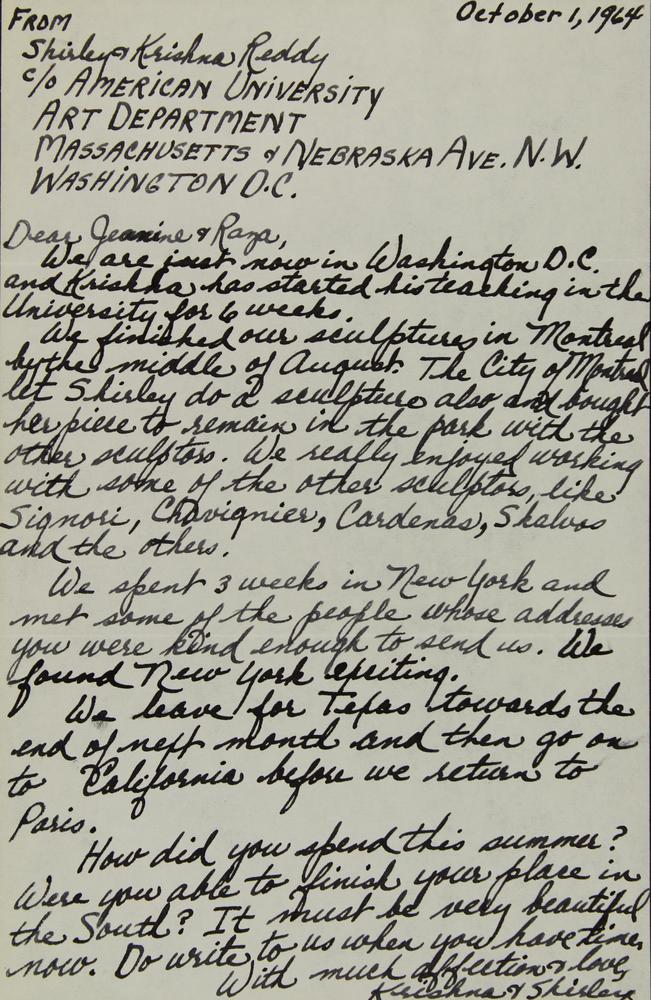 October 1, 1964
FROM
Shirley & Krishna Reddy
c/o AMERICAN UNIVERSITY
ART DEPARTMENT
MASSACHUSETTS & NEBRASKA AVE. N.W.
WASHINGTON D.C.
Dear Jeanine & Raza,
We are just now in Washington D.C.
and Krishna has started his teaching in the
University for 6 weeks.
We finished our sculptures in Montreal
by the middle of August. The City of Montreal
let Shirley do a sculpture also and bought
her piece to remain in the park with the
other sculptors. We really enjoyed working
with some of the other sculptors, like
Signori, Chavignier, Cardenas, Skalvos
and the others.
We spent 3 weeks in New York and
met some of the people whose addresses
you were kind enough to send us. We
found New York exciting.
We leave for Texas towards the
end of next month and then go on
to California before we return to
Paris.
How did you spend this summer?
Were you able to finish your place in
the South? It must be very beautiful
now. Do write to us when you have time.
With much affection & love,
Krishna & Shirley